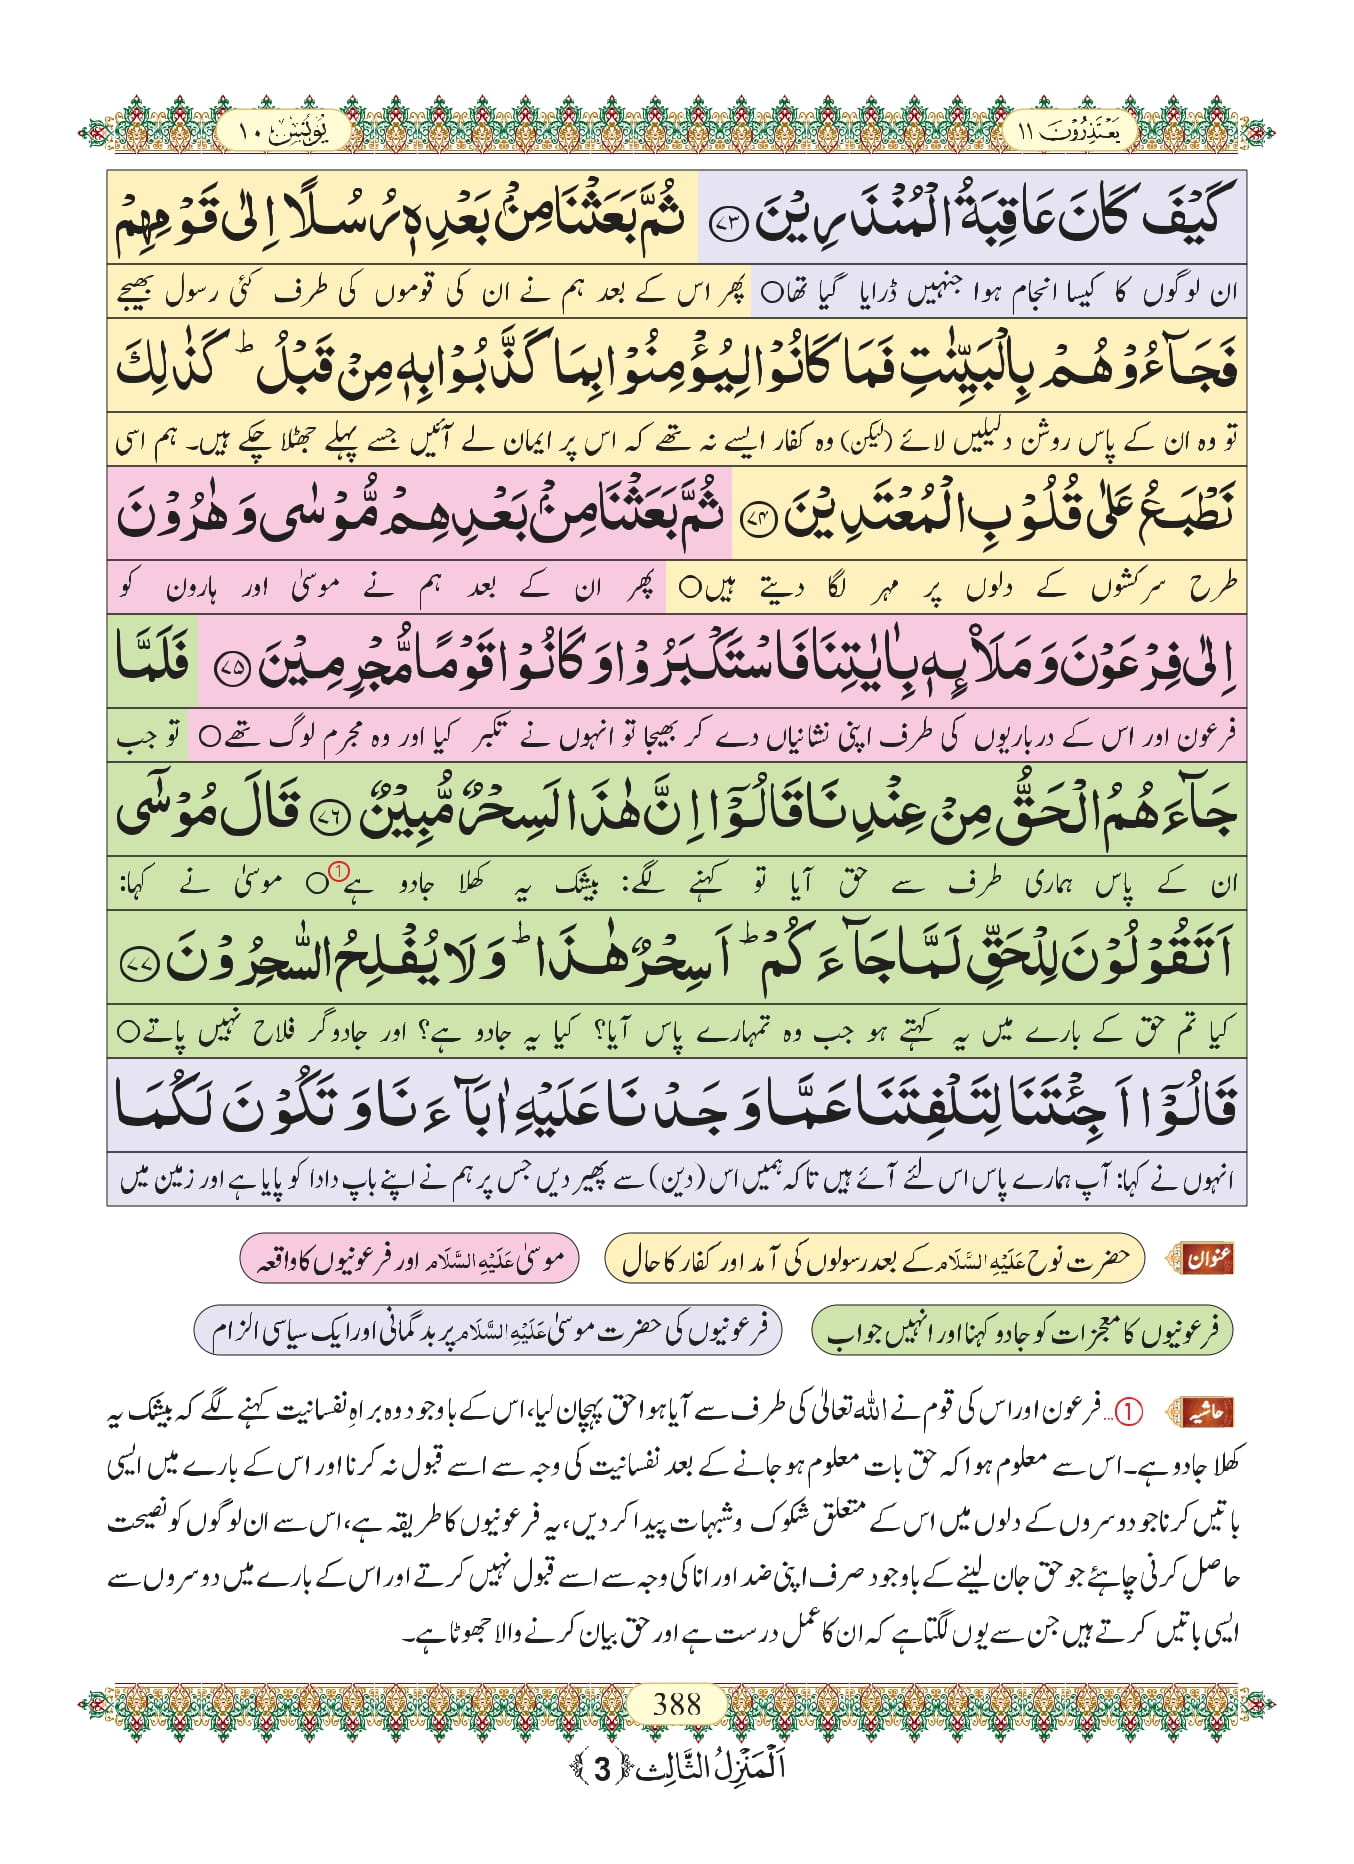 یَعْتَذِرُوْنَ ۱۱
یُوْنُس ۱۰
كَیْفَ كَانَ عَاقِبَةُ الْمُنْذَرِیْنَ ﴿۷۳﴾ ثُمَّ بَعَثْنَا مِنْۢ بَعْدِهٖ رُسُلًا اِلٰى قَوْمِهِمْ
ان لوگوں کا کیسا انجام ہوا جنہیں ڈرایا گیا تھا○ پھر اس کے بعد ہم نے ان کی قوموں کی طرف کئی رسول بھیجے
فَجَآءُوْهُمْ بِالْبَیِّنٰتِ فَمَا كَانُوْا لِیُؤْمِنُوْا بِمَا كَذَّبُوْا بِهٖ مِنْ قَبْلُ ؕ كَذٰلِكَ
تو وہ ان کے پاس روشن دلیلیں لائے (لیکن) وہ کفار ایسے نہ تھے کہ اس پر ایمان لے آئیں جسے پہلے جھٹلا چکے ہیں۔ ہم اسی
نَطْبَعُ عَلٰى قُلُوْبِ الْمُعْتَدِیْنَ ﴿۷۴﴾ ثُمَّ بَعَثْنَا مِنْۢ بَعْدِهِمْ مُّوْسٰى وَ هٰرُوْنَ
طرح سرکشوں کے دلوں پر مہر لگا دیتے ہیں○ پھر ان کے بعد ہم نے موسیٰ اور ہارون کو
اِلٰى فِرْعَوْنَ وَ مَلَاۡىٕهٖ بِاٰیٰتِنَا فَاسْتَكْبَرُوْا وَ كَانُوْا قَوْمًا مُّجْرِمِیْنَ ﴿۷۵﴾ فَلَمَّا
فرعون اور اس کے درباریوں کی طرف اپنی نشانیاں دے کر بھیجا تو انہوں نے تکبر کیا اور وہ مجرم لوگ تھے○ تو جب
جَآءَهُمُ الْحَقُّ مِنْ عِنْدِنَا قَالُوْۤا اِنَّ هٰذَا لَسِحْرٌ مُّبِیْنٌ ﴿۷۶﴾ قَالَ مُوْسٰۤى
ان کے پاس ہماری طرف سے حق آیا تو کہنے لگے: بیشک یہ کھلا جادو ہے①○ موسیٰ نے کہا:
اَتَقُوْلُوْنَ لِلْحَقِّ لَمَّا جَآءَكُمْ ؕ اَسِحْرٌ هٰذَا ؕ وَ لَا یُفْلِحُ السّٰحِرُوْنَ ﴿۷۷﴾
کیا تم حق کے بارے میں یہ کہتے ہو جب وہ تمہارے پاس آیا؟ کیا یہ جادو ہے؟ اور جادوگر فلاح نہیں پاتے○
قَالُوْۤا اَجِئْتَنَا لِتَلْفِتَنَا عَمَّا وَجَدْنَا عَلَیْهِ اٰبَآءَنَا وَ تَكُوْنَ لَكُمَا
انہوں نے کہا: آپ ہمارے پاس اس لئے آئے ہیں تاکہ ہمیں اس (دین) سے پھیر دیں جس پر ہم نے اپنے باپ دادا کو پایا ہے اور زمین میں
عنوان حضرت نوح عَلَیْهِ السَّلَام کے بعد رسولوں کی آمد اور کفار کا حال موسیٰ عَلَیْهِ السَّلَام اور فرعونیوں کا واقعہ
فرعونیوں کا معجزات کو جادو کہنا اور انہیں جواب فرعونیوں کی حضرت موسیٰ عَلَیْهِ السَّلَام پر بدگمانی اور ایک سیاسی الزام
حاشیہ ①... فرعون اور اس کی قوم نے اللہ تعالیٰ کی طرف سے آیا ہوا حق پہچان لیا، اس کے باوجود وہ براہِ نفسانیت کہنے لگے کہ بیشک یہ
کھلا جادو ہے۔ اس سے معلوم ہوا کہ حق بات معلوم ہو جانے کے بعد نفسانیت کی وجہ سے اسے قبول نہ کرنا اور اس کے بارے میں ایسی
باتیں کرنا جو دوسروں کے دلوں میں اس کے متعلق شکوک و شبہات پیدا کر دیں، یہ فرعونیوں کا طریقہ ہے، اس سے ان لوگوں کو نصیحت
حاصل کرنی چاہئے جو حق جان لینے کے باوجود صرف اپنی ضد اور انا کی وجہ سے اسے قبول نہیں کرتے اور اس کے بارے میں دوسروں سے
ایسی باتیں کرتے ہیں جن سے یوں لگتا ہے کہ ان کا عمل درست ہے اور حق بیان کرنے والا جھوٹا ہے۔
388
اَلْمَنْزِلُ الثَّالِث ﴿3﴾